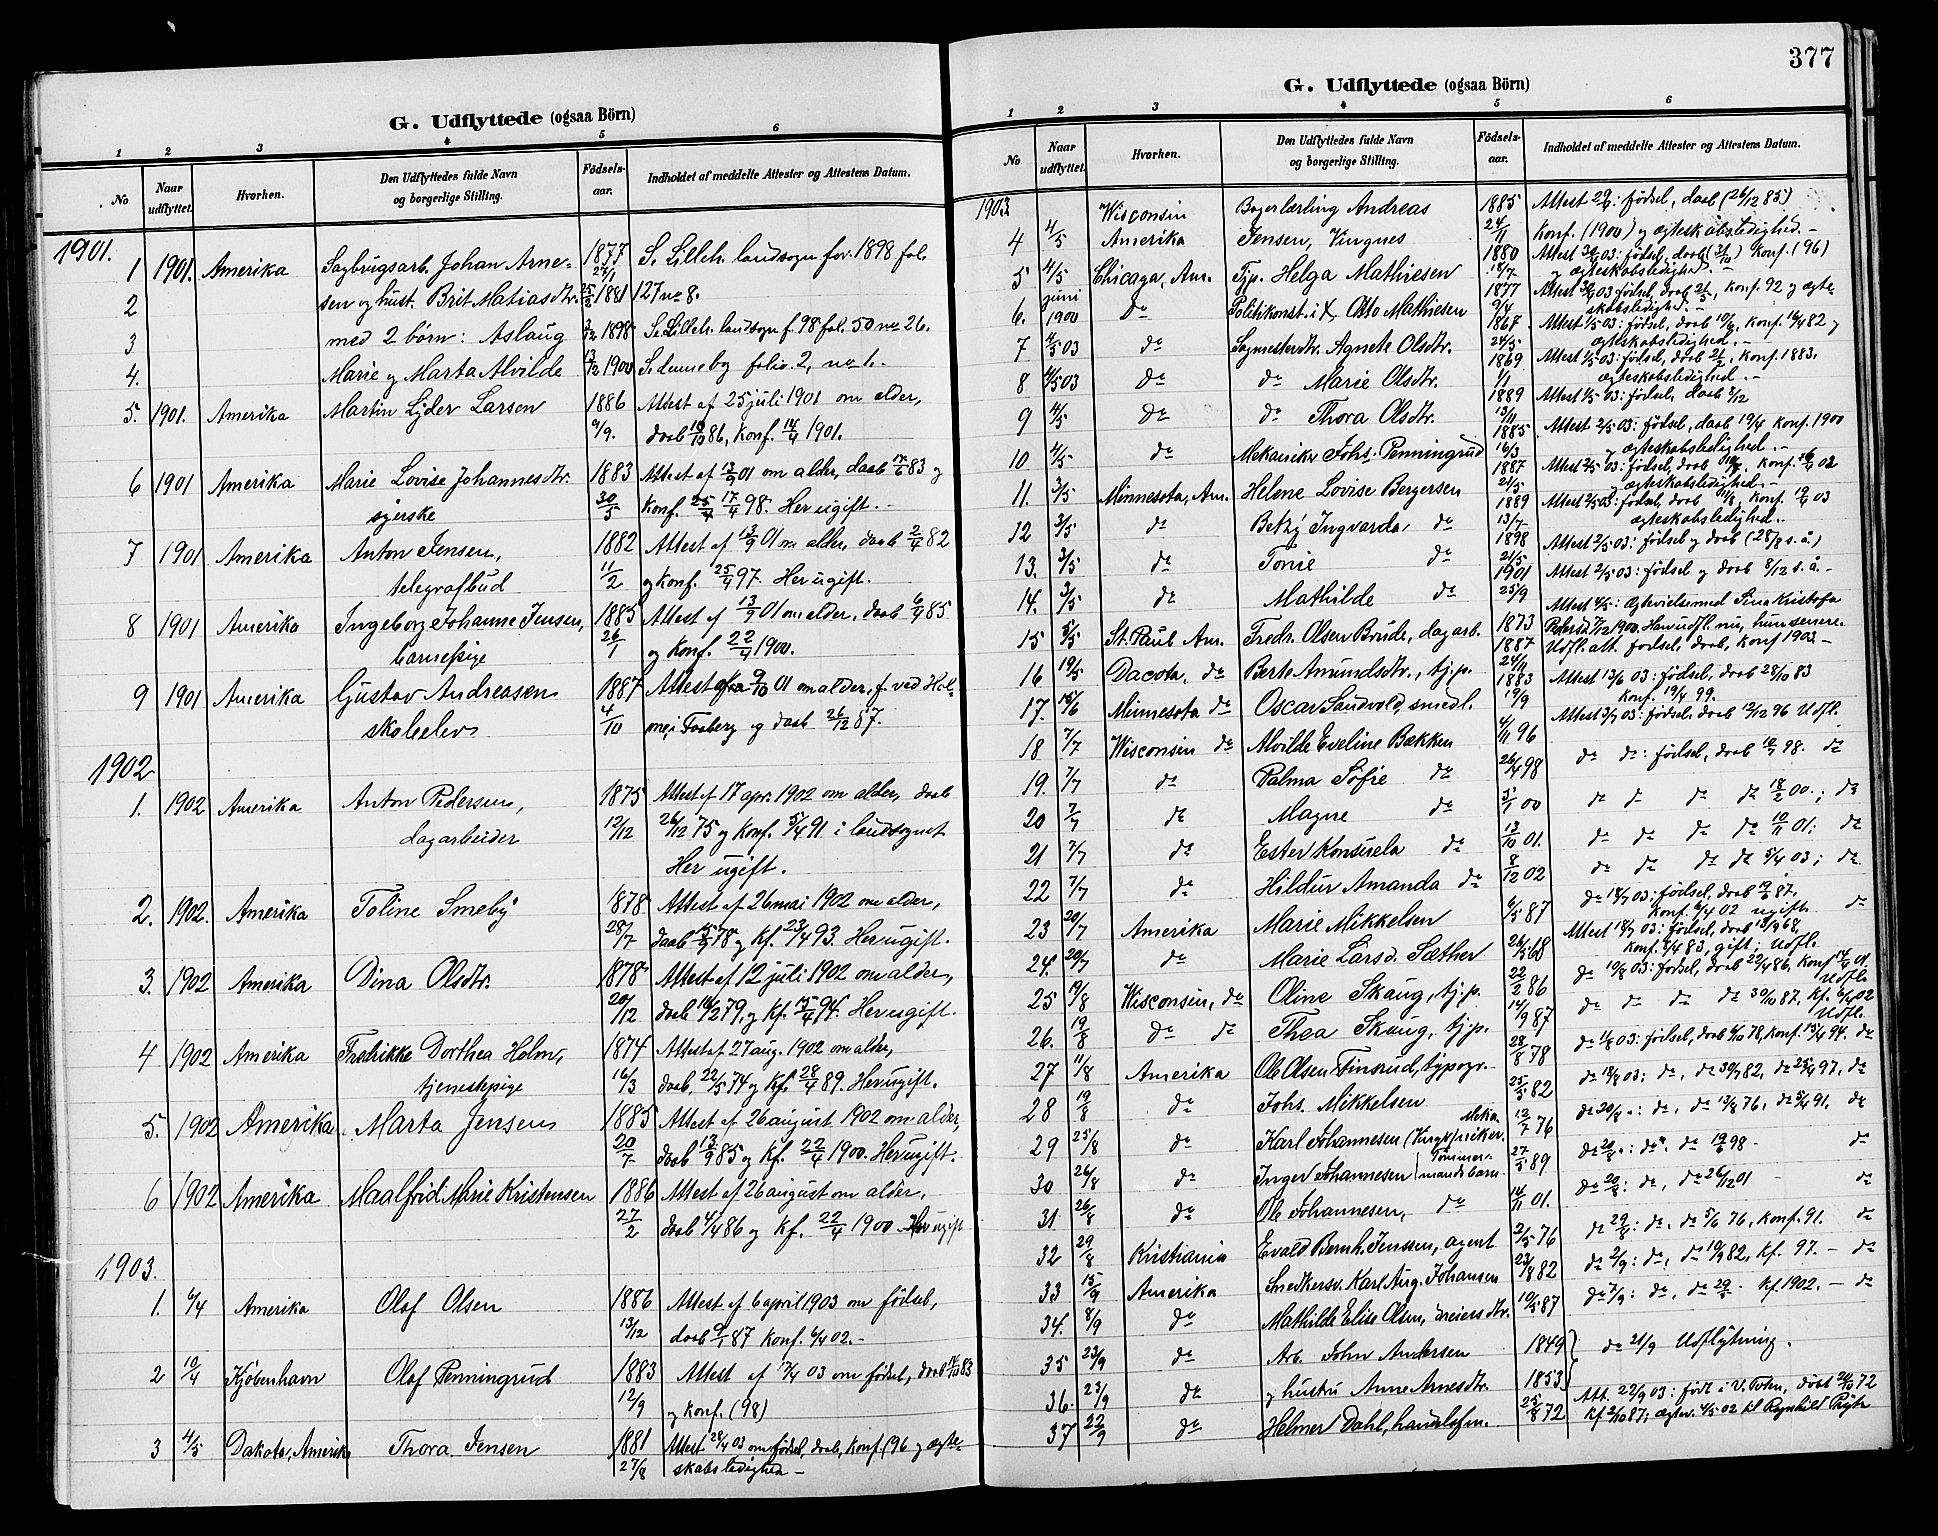 G. Udflyttede (ogsaa Börn)
1 2 3 4 5 6
No Naar udflyttet. Hvorhen. Den Udflyttedes fulde Navn og borgerlige Stilling. Födsels-aar. Indholdet af meddelte Attester og Attestens Datum.
1901.
1 1901. Amerika Sagbrugsarb. Johan Arne- 1877 S. Lilleh. landsogn for 1898 fol.
27/1
2 sen og hust. Brit Matiasdtr. 1881 127 no 8.
3 med 2 børn: Aslaug 1898 S. Lilleh. landsogn f. 98 fol. 50 no 26.
4. Marie og Marta Alvilde 13/12 1900 S. denne by folio 2, no 1.
5. 1901. Amerika Martin Lyder Larsen 1886 Attest af 25 juli 1901 om alder,
9/9. daab 10/10 86, Konf. 14/4 1901.
6 1901 Amerika Marie Lovise Johannesdtr. 1883 Attest af 13/9 01 om alder, daab 17/6 83 og
syerske 30/5 Konf. 17/4 98. Her ugift.
7 1901 Amerika Anton Jensen, 1882 Attest af 13/9 01 om alder, daab 2/4 82
telegrafbud 11/2 og konf. 25/4 97. Her ugift.
8 1901 Amerika Ingeborg Johanne Jensen, 1885 Attest af 13/9 01 om alder, daab 6/4 85
barnepige 26/1 og Konf. 22/4 1900.
9 1901 Amerika Gustav Andreasen 1887 Attest 9/10 01 om alder, f. ved Hol-
skoleelev 4/10 me i Faaberg og daab 26/12 87.
1902
1. 1902 Amerika Anton Pedersen, 1875 Attest af 17 apr. 1902 om alder, daab
dagarbeider 12/12 26/12 75 og Konf. 5/4 91 i landsognet
Her ugift.
2. 1902. Amerika Toline Smeby 1878 Attest af 26 mai 1902 om alder,
28/7 daab 78 og Kf. 23/4 93. Her ugift.
3. 1902 Amerika Dina Olsdtr. 1878 Attest af 12 juli 1902 om alder,
20/12 daab 16/2 79, og Kf. 15/4 94. Her ugift.
4 1902 Amerika Fredrikke Dorthea Holm, 1874 Attest af 27 aug. 1902 om alder,
tjenestepige 16/3 daab 22/5 74 og Kf. 28/4 89. Her ugift.
5. 1902 Amerika Marta Jensen 1885 Attest af 26 august 1902 om alder,
20/7 daab 13/9 85 og Kf. 22/4 1900. Her ugift.
6 1902 Amerika Maalfrid Marie Kristensen 1886 Attest af 26 august om alder,
27/2 daab 4/4 86 og Kf. 22/4 1900. Her ugift
1903.
1. 6/4 Amerika Olaf Olsen 1886 Attest af 6 april 1903 om fødsel,
13/12 daab 9/1 87 konf. 6/4 02.
2 10/4 Kjøbenhavn Olaf Penningrud 1883 Attest af 7/4 03 om fødsel, daab 14/10 83
12/9 og konf. (98)
3 4/5 Dakota, Amerika Thora Jensen 1881 Attest 28/4 03 om fødsel, daab, konf (96 og ægte-
27/8 skabsledighed
377
G. Udflyttede (ogsaa Börn)
1 2 3 4 5 6
No Naar udflyttet. Hvorhen. Den Udflyttedes fulde Navn og borgerlige Stilling. Födsels-aar. Indholdet af meddelte Attester og Attestens Datum.
1903. Wisconsin Bagerlærling Andreas 1885 Attest 29/4: fødsel, daab (26/12 85)
4 4/5 Amerika Jensen, Vingnes 24/11 konf. (1900) og ægteskabsledighed.
5 4/5 Chicago, Am. Tjp. Helga Mathiesen 1880 Attest 30/4 03: fødsel, daab (31/10) konf. (96)
18/7 og ægteskabsledighed.
6. juni 1900 do Politikonst. i X. Otto Mathiesen 1877 Attest 30/4 03 fødsel, daab 21/5, konf. 92 og ægte-
9/4 skabsledighed.
7 4/5 03 do Sagmesterdtr. Agnete Olsdtr. 1867 Attest 1/5 03: fødsel, daab 10/6, konf. 16/4 82 og
24/5 ægteskabsledighed.
8 4/5 03 do do Marie Olsdtr. 1869 Attest 1/5 03: fødsel, daab 21/2, konf. 1883.
1/1 ægteskabsledighed.
9 4/5 do do Thora Olsdtr. 1889 Attest 1/5 03: fødsel, daab 8/12
13/11
10 4/5 do Mekaniker Johs. Penningrud 1885 Attest 2/5 03: fødsel, daab 19/4 konf. 1900
16/3 og ægteskabsledighed.
11. 3/5 Minnesota, Am. Helene Lovise Bergersen 1887 Attest 2/5 03: fødsel, daab konf. 02
21/5 og ægteskabsledighed.
12 3/5 do Betzy Ingvarda, do 1889 Attest 2/5 03: fødsel, daab 11/8, konf. 19/4 03
13/7 ægteskabsledighed.
13. 3/5 do Tonie do 1898 Attest 2/5 03: fødsel og daab (28/8 s. å.)
21/5
14. 3/5 do Mathilde do 1901 Attest 2/5 03: fødsel og daab 8/12 s. å.
25/9
15 5/5 St. Paul Am. Fredr. Olsen Brude, dagarb. 1873 Attest 4/5: Ægtevielse med Sina Kristofa
Pedersdtr. 7/12 1900. Han udfl. nu, hun senere.
16 19/5 Dacota, do Berte Amundsdtr., tj.p. 1887 Udfl. att. fødsel, daab, konf 1903
24/11
17. 15/6 Minnesota do Oscar Sandvold, smedl. 1883 Attest 13/6 03: fødsel, daab 28/10 83
19/9 konf. 19/4 99.
18 7/7 Wisconsin do Alvilde Eveline Bækken 4/11 96 Attest 3/7 03: fødsel, daab 13/12 96 Udfl.
19. 7/7 do Palma Sofie do 26/4 98 do do: fødsel, daab 10/7 98. do
20 7/7 do Magne do 5/1 00 do do do do 18/2 00.; do
21 7/7 do Ester Konsuela do 13/10 01. do do do do 10/11 01; do
22 7/7 do Hildur Amanda do 8/12 02 do do do do 5/4 03; do
23 20/7 Amerika Marie Mikkelsen 6/5 87 do 18/7 03: fødsel, daab 12/6 87,
konf. 6/4 02 ugift. do
24. 20/7 do Marie Larsd. Sæther 26/5 68 Attest 18/7 03: fødsel, daab 13/9 68,
konf. 8/4 83, gift; Udfl.
25 19/8 Wisconsin, do Oline Skaug, tj.p. 22/2 86 do 10/8 03: fødsel, daab 22/4 86, konf 14/4 01
Udfl.
26. 19/8 do do Thea Skaug, tj.p. 14/9 87 do do do do 30/10 87, Kf. 6/4 02
Udfl.
27 11/8 Amerika Ole Olsen Finsrud, typogr. 28/8 78 do 1/8 03: fødsel, daab 6/10 78, konf. 15/4 94. do
28 19/8 do Johs. Mikkelsen 25/5 82 do 18/8 03; do, do 30/7 82, do 25/4 97, do
29 25/8 do Karl Johannesen (Vingk) Mekaniker. 12/7 76 do 20/8: do, do 13/8 76, do 5/4 91. do
30 26/8 do Inger Johannesen Tømmermandsbarn 27/5 89 do 20/8: do, do 19/6 98 do
31 26/8 do Ole Johannesen, do 14/11 01. do 20/8: do, do 26/12 01 do
32 29/8 Kristiania Evald Bernh. Jenssen, agent 2/5 76 do 29/8: do, do 5/6 76, konf. 91. do
33 15/9 Amerika Snedkersv. Karl Aug. Johansen 23/1 82 do 2/9: do, do 10/9 82, Kf. 97. do
34. 8/9 do Mathilde Elise Olsen, veiersdtr. 10/5 87 do 7/9: do, do 29/5 Kf 1902. do
35 23/9 do Arb. John Andersen 1849 do 21/9 Udflytning.
36. 23/9 do og hustru Anne Arnesdtr. 1853
37 22/9 do Helmer Dahl, handelsfm. 25/8 72 Att. 22/9 03: født i V. Toten, døbt 20/10 72
Kf 2/10 87; ægtev. 4/5 02 til Ragnhild